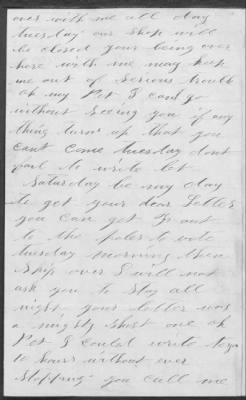 over with me all day
tuesday our shop will
be closed your being over
here with me may keep
me out of serious troubl
oh my Pet I cant go
without seeing you if any
thing turns up that you
cant come tuesday dont
fail to write let
Saturday be my day
to get your dear Letter
you can get out
to the poles to vote
tuesday morning then
Skip over I will not
ask you to stay all
night your letter was
a mighty short one oh
Pet I could write to you
10 hours without ever
stopping you call me